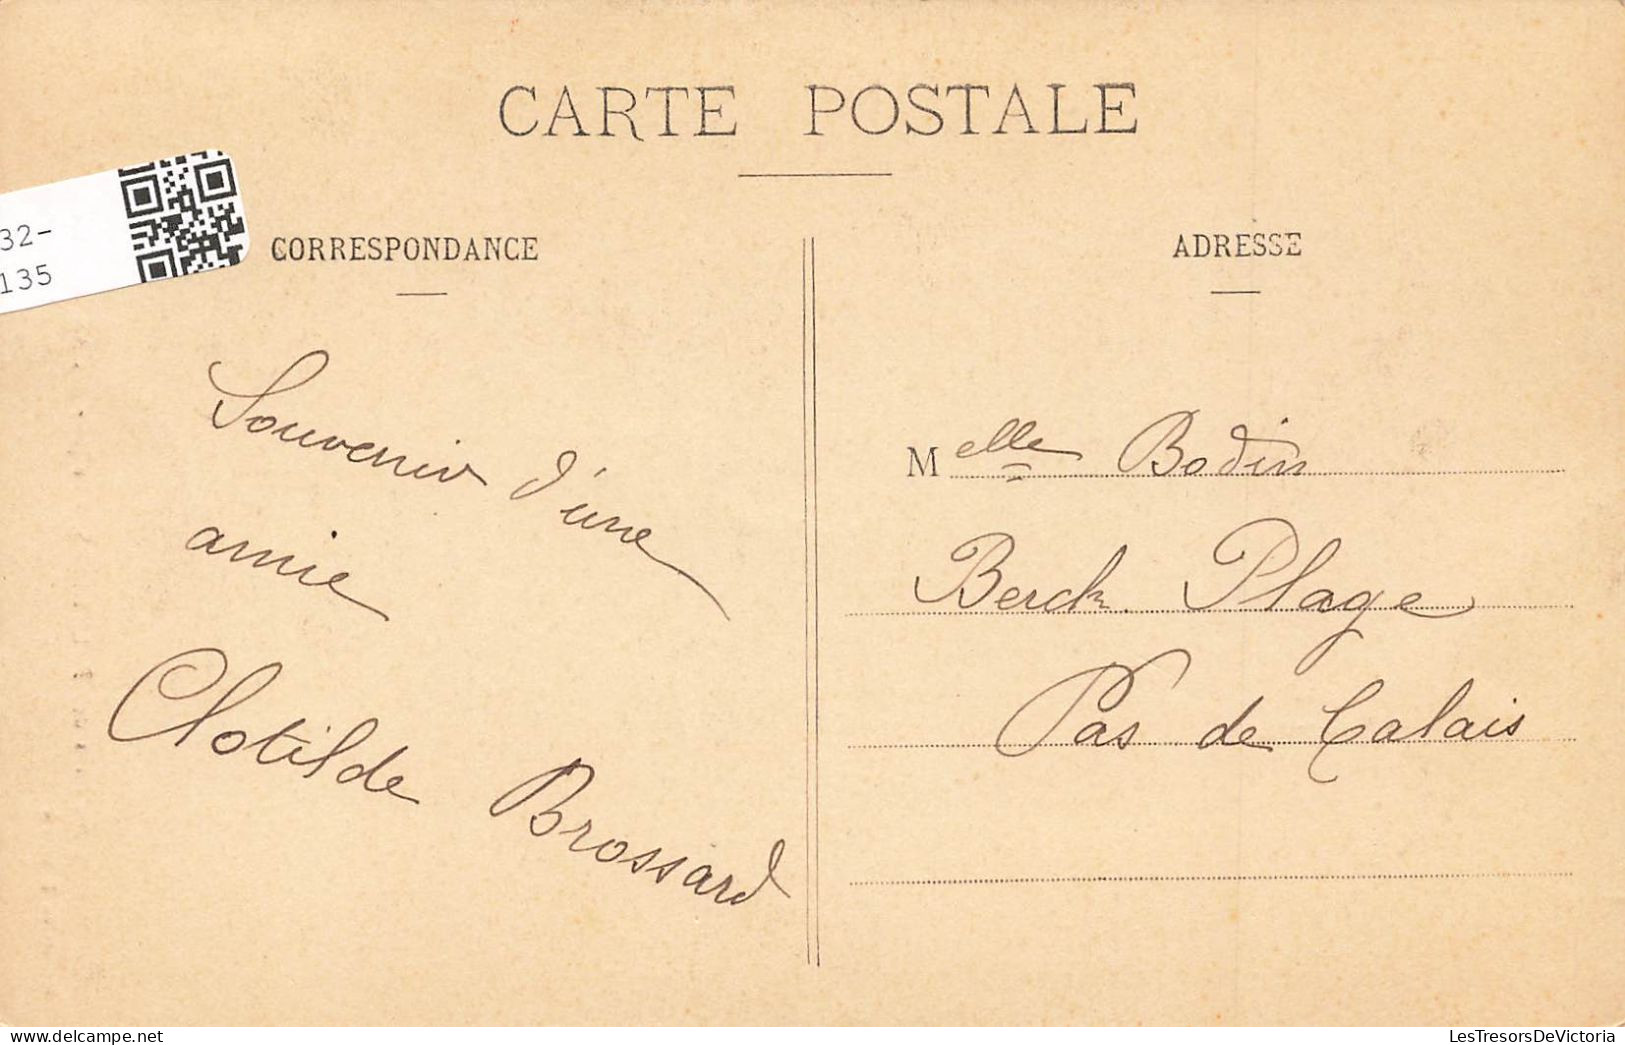 CARTE POSTALE
32-
135
CORRESPONDANCE
Souvenir d'une
amie
Clotilde Brossard
ADRESSE
Melle Bodin
Berck Plage
Pas de Calais
delcampe.net
LesTresorsDeVictoria